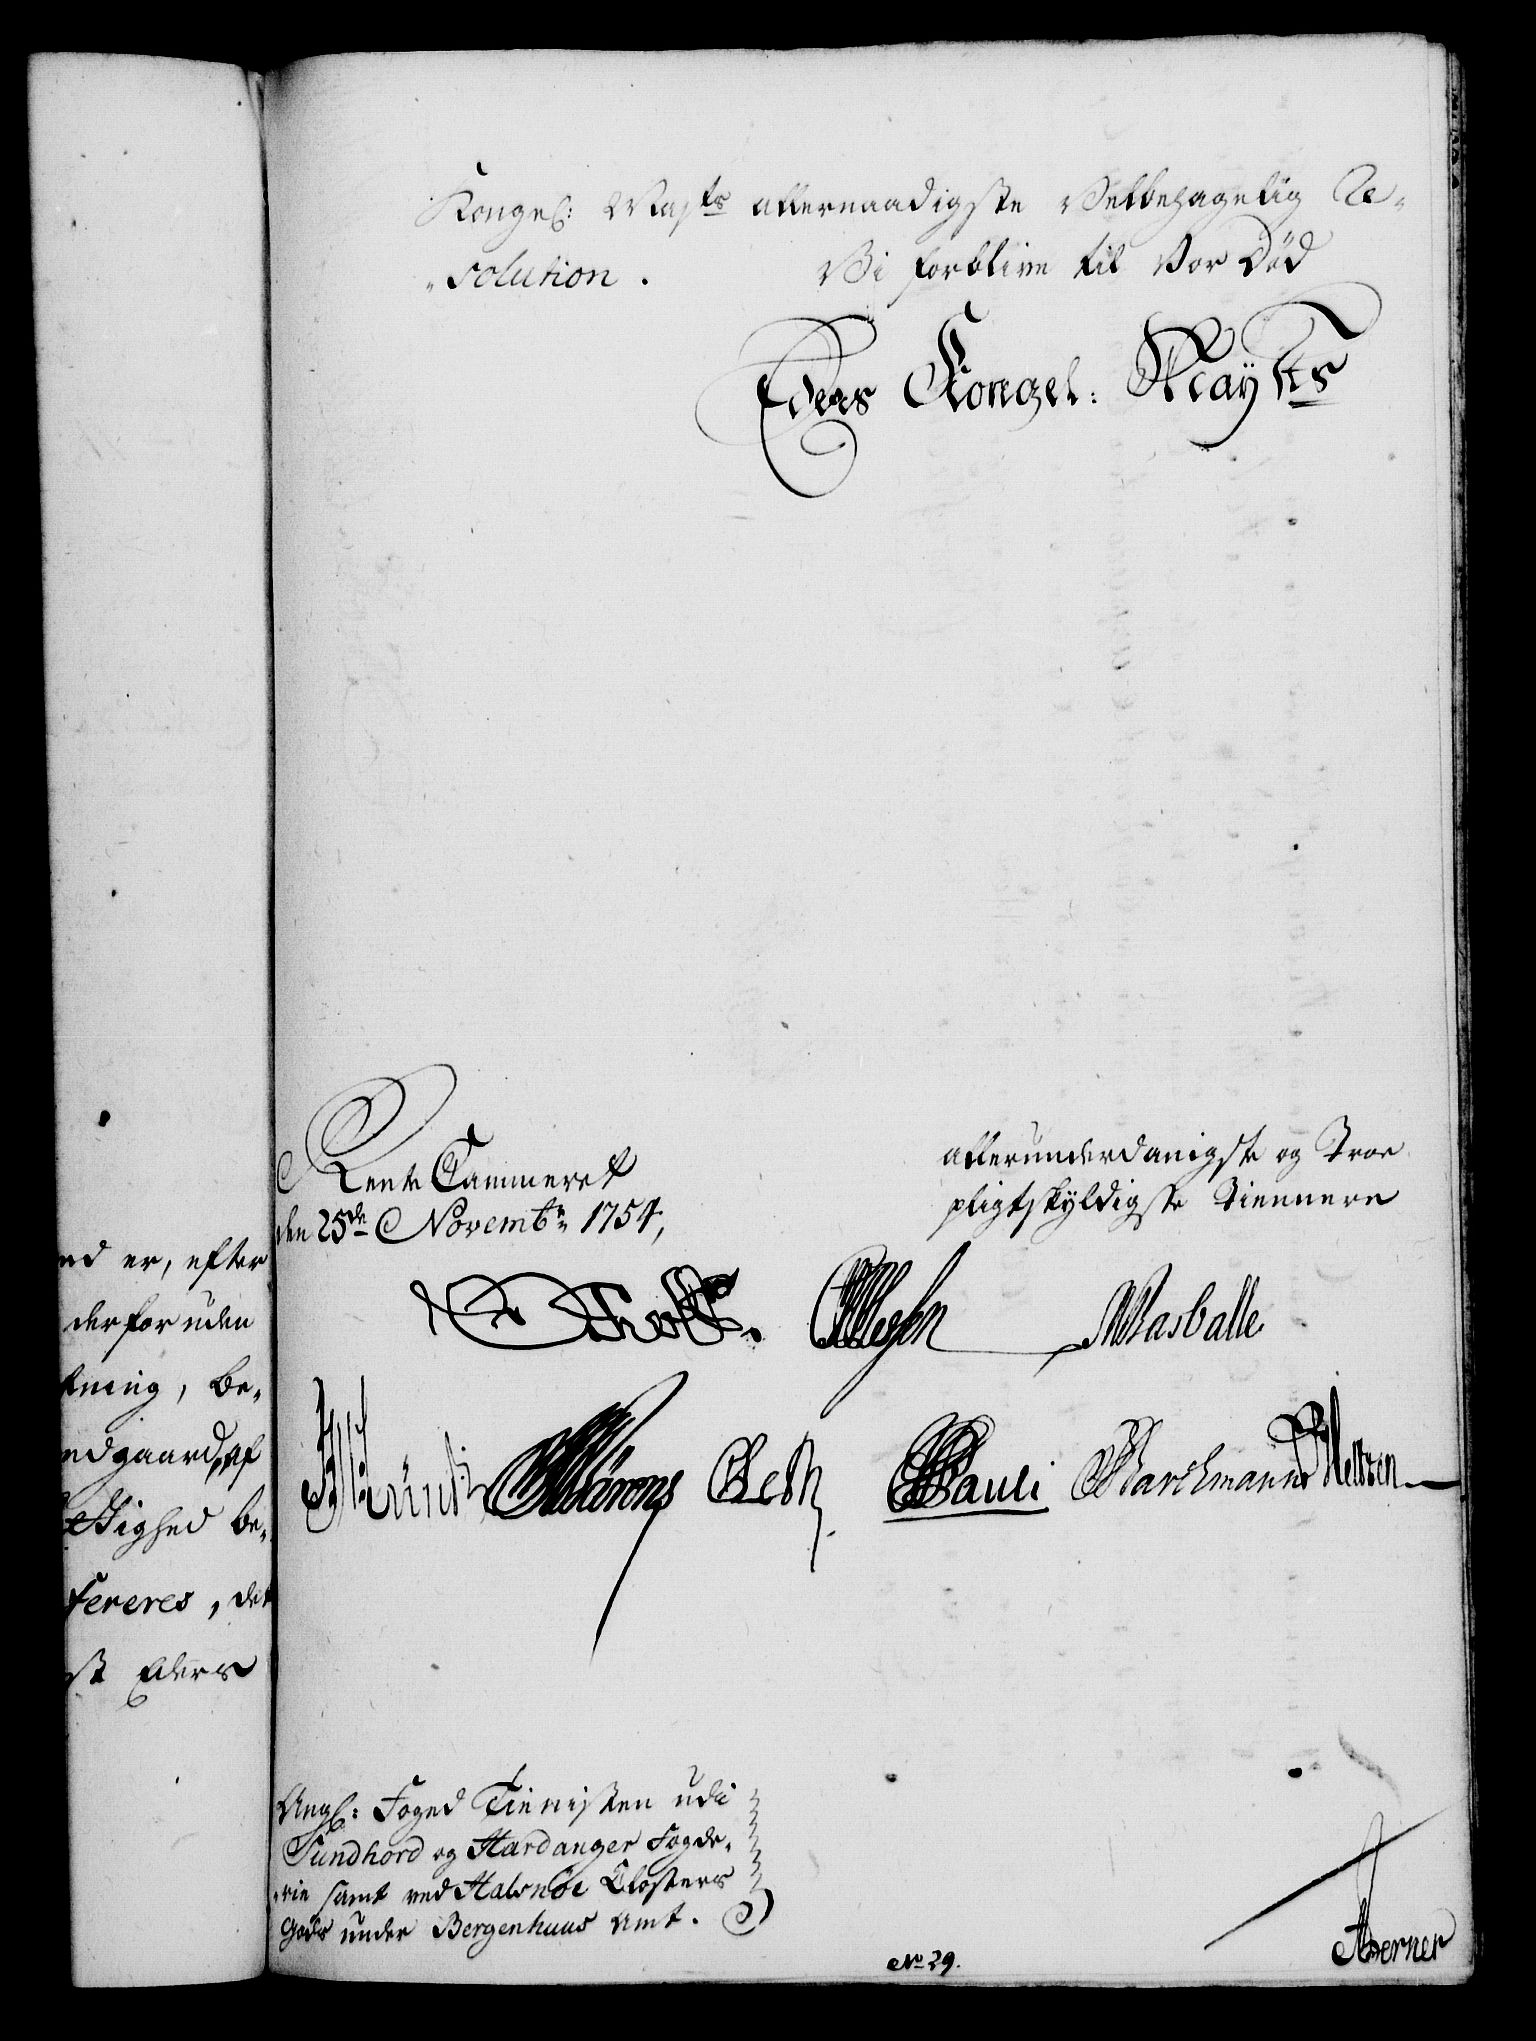 Kongel: Mayts allernaadigste Velbehagelig Re-
-solution. Vi forblive til Vor Død
Eders Kongel: Mayts
Rente Cammeret
den 25de Novembr 1754,
allerunderdanigste og Troe
pligtskyldigste Tiennere
Holst.
Rasballe
Pauli
Barchmann
Nelleren
nd er, efter
derforuden
tning, be-
ndgaard, af
ttighed be-
fereres, det
st Eders
Angl: Foged Tienisten udi
Sundhord og Hardanger Fogde-
-rie samt ved Halsnøe Closters
Gods under Bergenhuus Amt.
No 29.
Werner